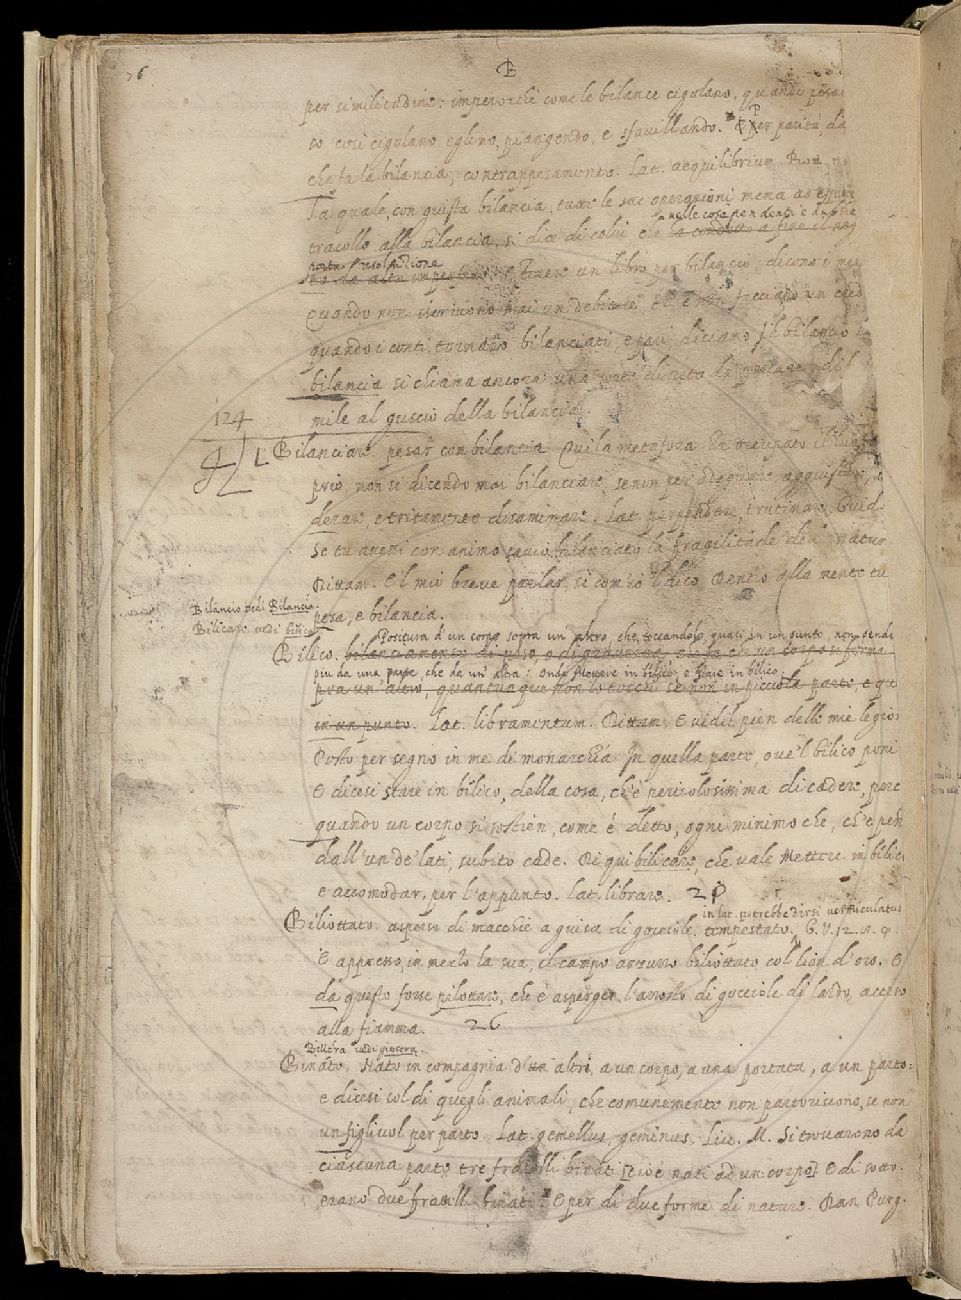 76
B
per similitudine: imperocchè come le bilance cigolano, quando
so così cigolano eglino, piangendo, e sfavillando. E per parità, da
che fa la bilancia, contrappesamento. Lat. aequilibrium.
La quale, con giusta bilancia, tutte le sue operazioni mena ad
nelle cose pendenti e dubbie
tracollo alla bilancia, si dice di colui che la condotto a fine il neg
porta resoluzione
Tenere un libro per bilancio dicono i
quando non iscrivono mai un debitore, che non facciano un
quando i conti, tornano bilanciati, e pari, diciamo il bilancio
bilancia si chiama ancora una sorte di rete da pescare,
mile al guscio della bilancia.
124
4
Bilanciare. pesar con bilancia. Qui la metafora ha occupato il
prio, non si dicendo mai bilanciare, se non per adeguare, aggiustare,
derare, e tritamente disaminare. Lat. perpendere, trutinare. Guid.
Se tu avessi con animo savio bilanciato la fragilitade de
Dittam. E'l mio breve parlar, sì com'io'l dico, Dentro alla mente tu
Bilancio vedi Bilancia.
pesa, e bilancia.
Bilicare vedi bilico
Positura d'un corpo sopra un altro, che, toccandolo, quasi in un punto, non pende
Bilico. bilanciamento di peso, o di gravezza, un corpo si ferma
più da una parte, che da un'altra: onde Mettere in bilico, e stare in bilico
pra un'altro, quantunque non lo tocchi se non in piccola parte, e qu
in un punto. Lat. libramentum. Dittam. E vidil pien delle mie legion
Posto per segno in me di monarchia In quella parte, ove'l bilico poni
E dicesi stare in bilico, della cosa, ch'è pericolosissima di cadere, perc
quando un corpo si sostien, come è detto, ogni minimo che, ch'e pen
dall'un de' lati, subito cade. Di qui bilicare, che vale Mettere in bilic
e accomodar, per l'appunto. Lat. librare.
in lat. potrebbe dirsi vermiculatus
Biliottato. asperso di macchie a guisa di gocciole. tempestato. G. V. 12.
E appresso, in mezzo la sua, il campo azzurro biliottato col lion d'oro. E
da questo forse pilottare, che è asperger l'arrosto di gocciole di lardo, acceso
alla fiamma. 26
Billera vedi giostra.
Binato. Nato in compagnia d'un altro, a un corpo, a una portata, a un parto:
e dicesi sol di quegli animali, che comunemente non partoriscono, se non
un figliuol per parto. Lat. gemellus, geminus. Liv. M. Si trovarono da
ciascuna parte tre fratelli binati [cioè nati ad un corpo] E di sotto.
erano due fratelli binati. E per di due forme, di nature. Dan. Purg.